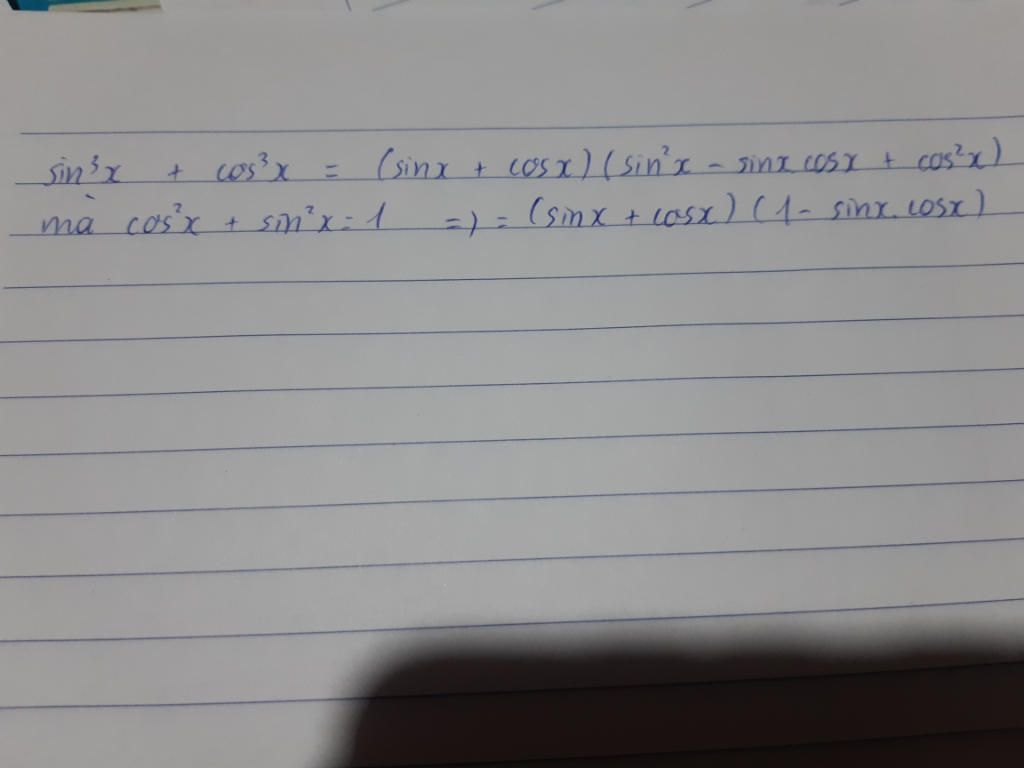 sin³x + cos³x = (sinx + cosx)(sin²x - sinx cosx + cos²x)
mà cos²x + sin²x = 1 =) = (sinx + cosx)(1 - sinx.cosx)